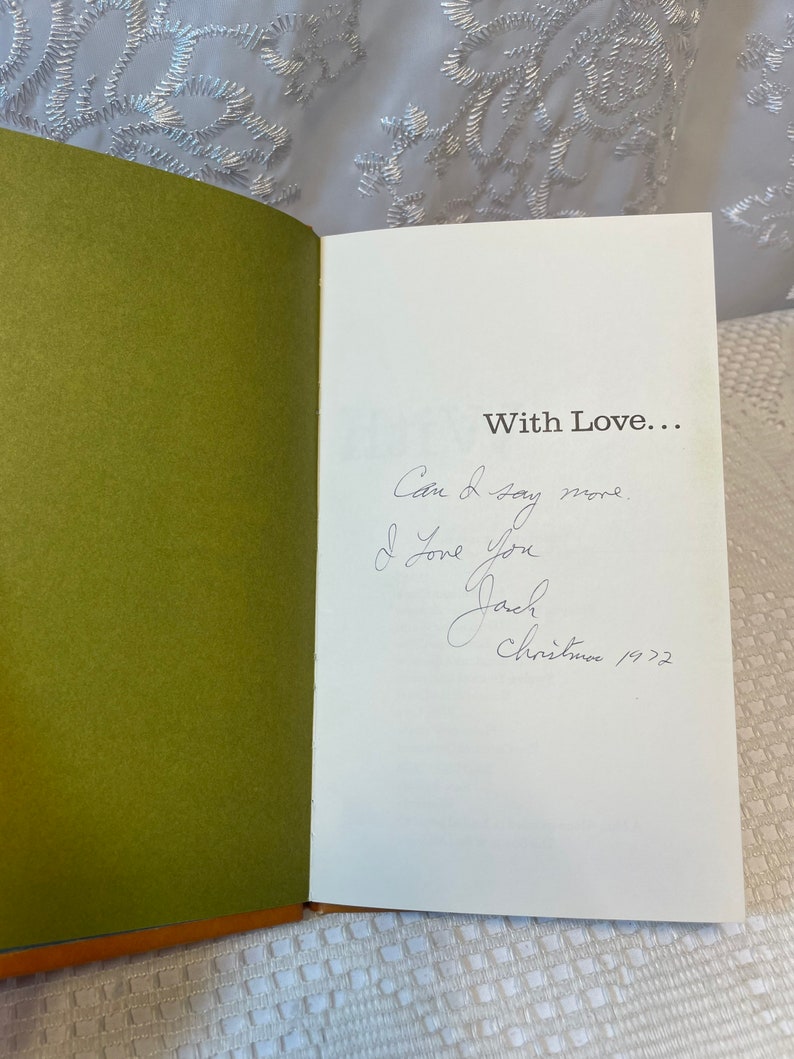 With Love...
Can I say more.
I Love You
Jack
Christmas 1972